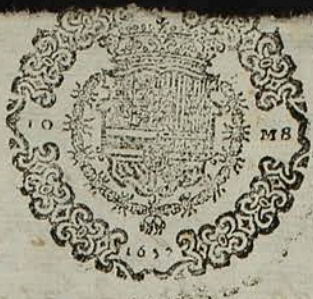 10 MS
1637